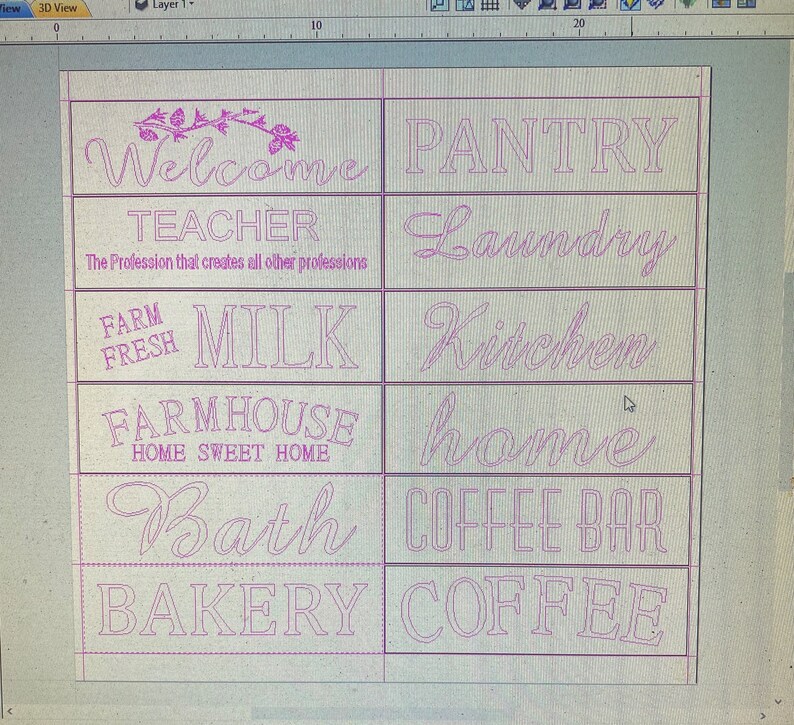 View
3D View
Layer 1
0
10
20
Welcome
PANTRY
TEACHER
The Profession that creates all other professions
Laundry
FARM
FRESH
MILK
Kitchen
FARMHOUSE
HOME SWEET HOME
home
Bath
COFFEE BAR
BAKERY
COFFEE